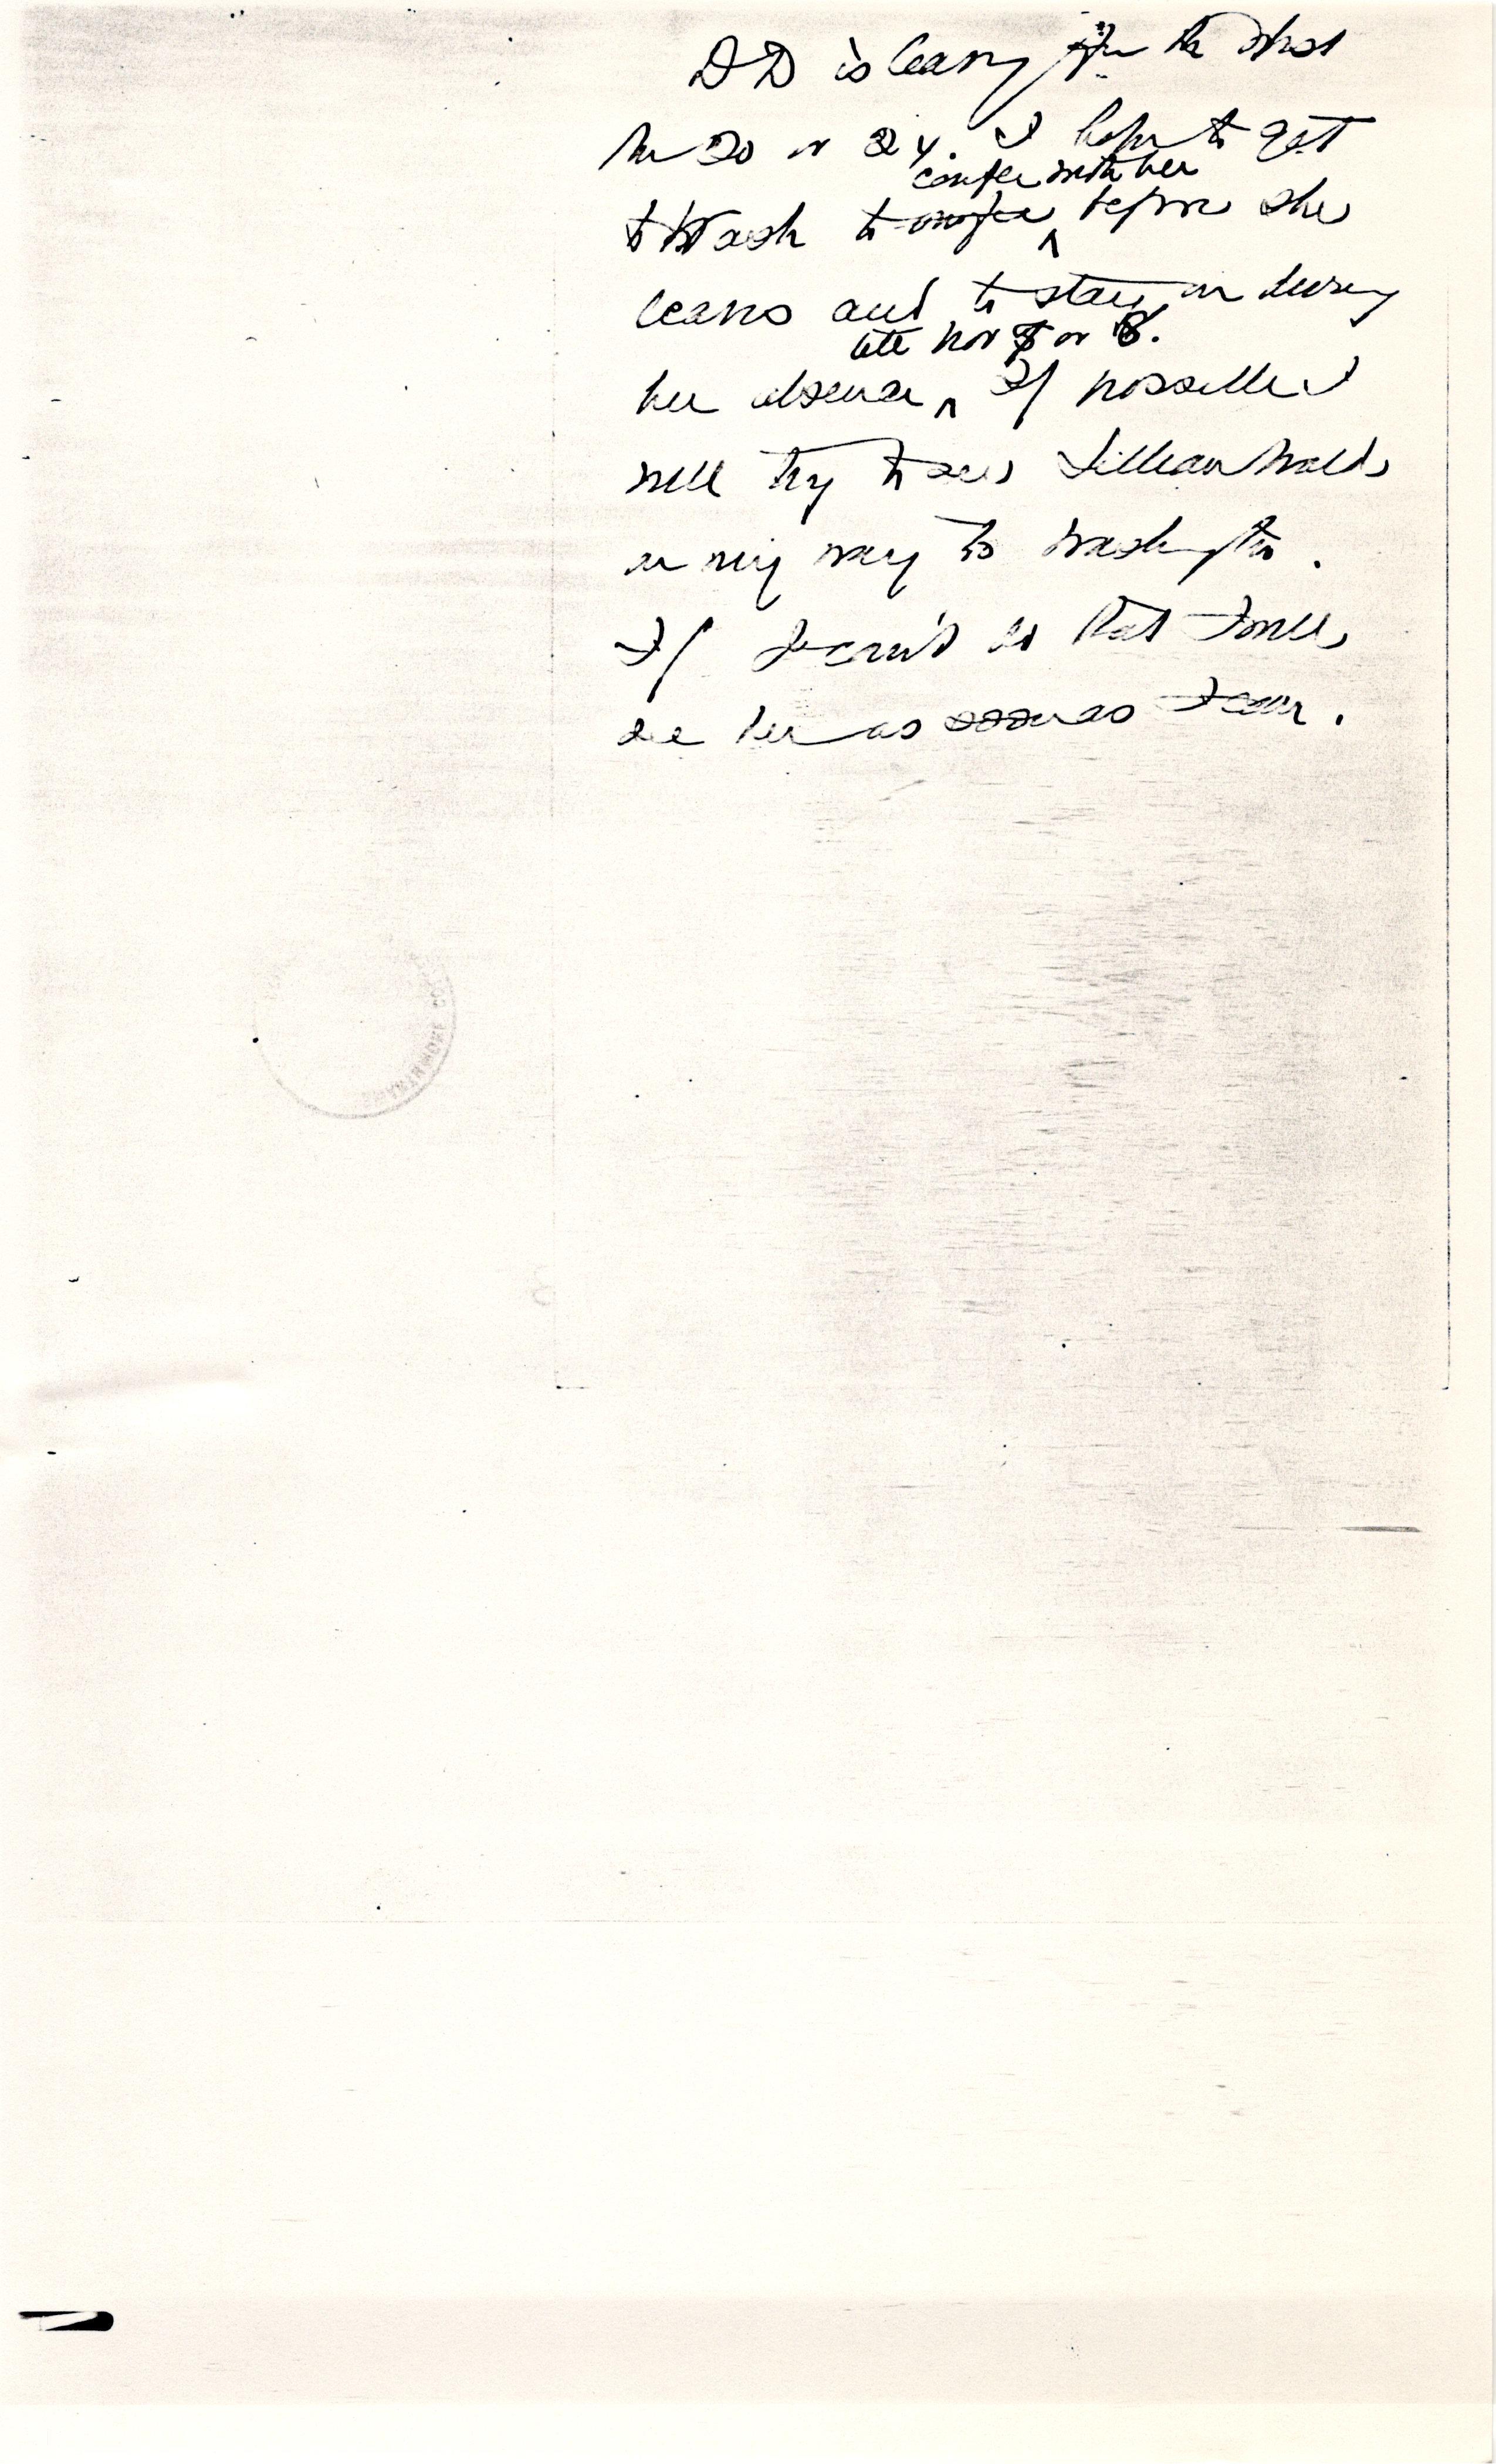 DD is leaving for the West
Nov 20 or 24. I hope to get
confer with her
to Wash to confer before she
leaves and to stay on during
till Nov 7 or 8.
her absence If possible I
will try to see Lillian Wald
on my way to Washington.
If I can't do that I will
see her as soon as I can.
SWARTHMORE